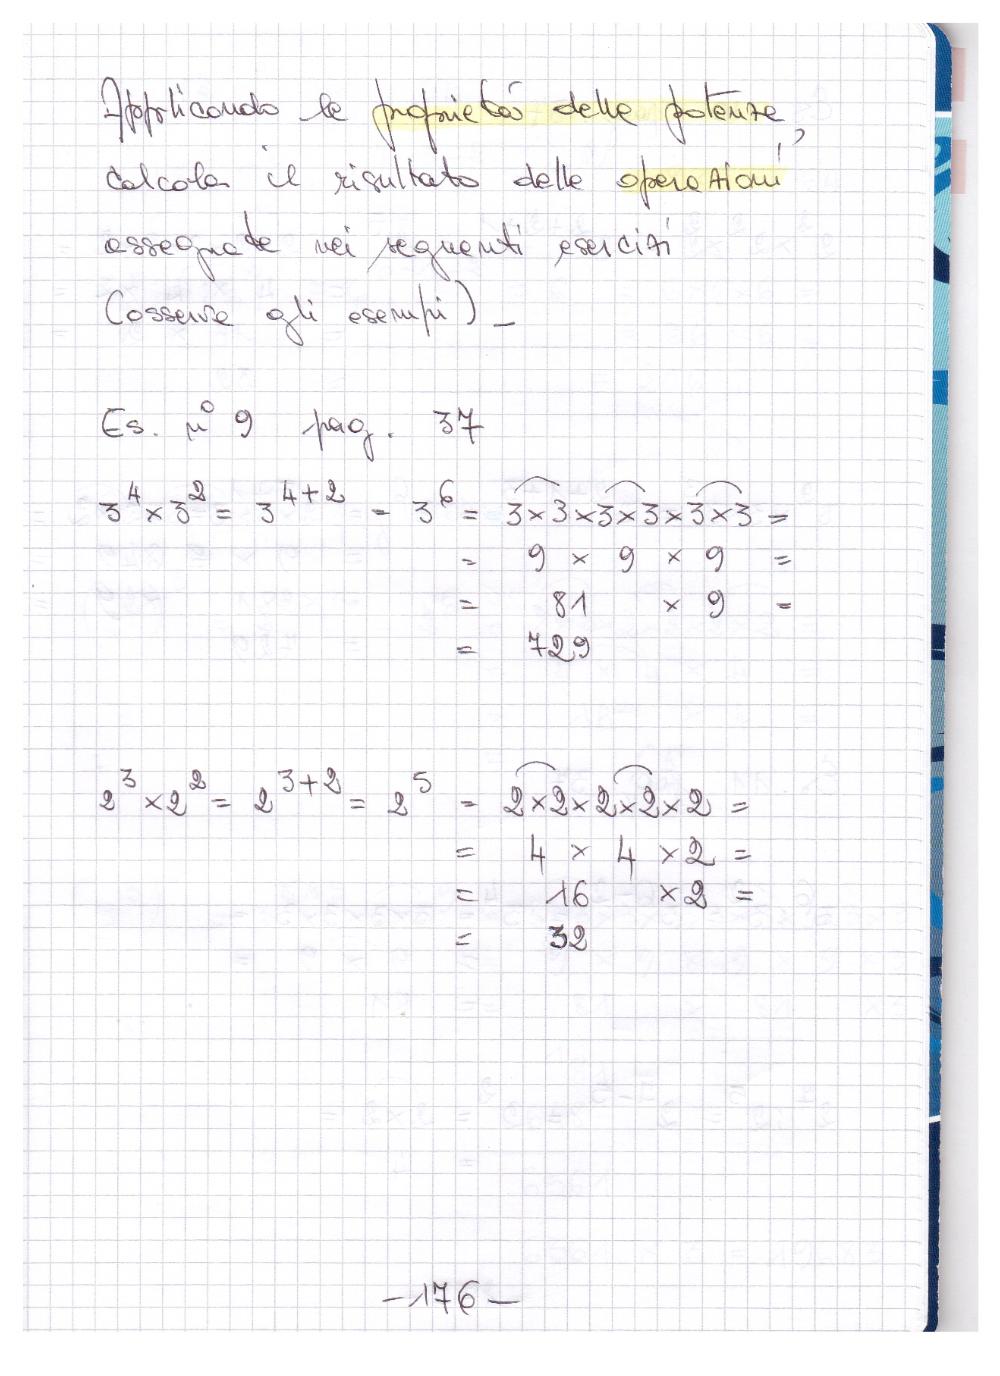 Applicando le proprietà delle potenze,
calcola il risultato delle operazioni
assegnate nei seguenti esercizi
(osserva gli esempi)_
Es. n° 9 pag. 37
3⁴ × 3² = 3⁴⁺² = 3⁶ = 3×3×3×3×3×3 =
= 9 × 9 × 9 =
= 81 × 9 =
= 729
2³ × 2² = 2³⁺² = 2⁵ = 2×2×2×2×2 =
= 4 × 4 × 2 =
= 16 × 2 =
= 32
– 176 –